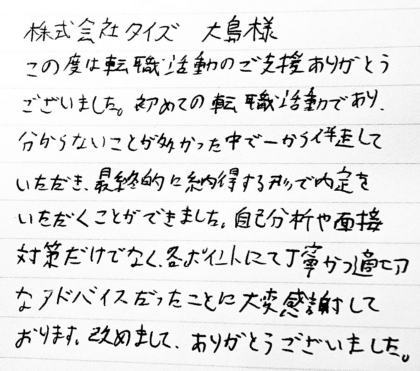 株式会社タイズ 大島様
この度は転職活動のご支援ありがとう
ございました。初めての転職活動であり、
分からないことが多かった中で一から伴走して
いただき、最終的に納得する形で内定を
いただくことができました。自己分析や面接
対策だけでなく、各ポイントにて丁寧かつ適切
なアドバイスだったことに大変感謝して
おります。改めまして、ありがとうございました。